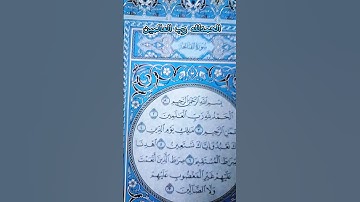 الحمدلله رب العالمين
سورة الفاتحة
بسم الله الرحمن الرحيم
الحمد لله رب العلمين
من الرحيم ملك يوم الدين
ك نعبد وإياك نستعين اهدنا
صرط المستقيم صرط الذين أنعمت
عليهم غير المغضوب عليهم
ولا الضالين